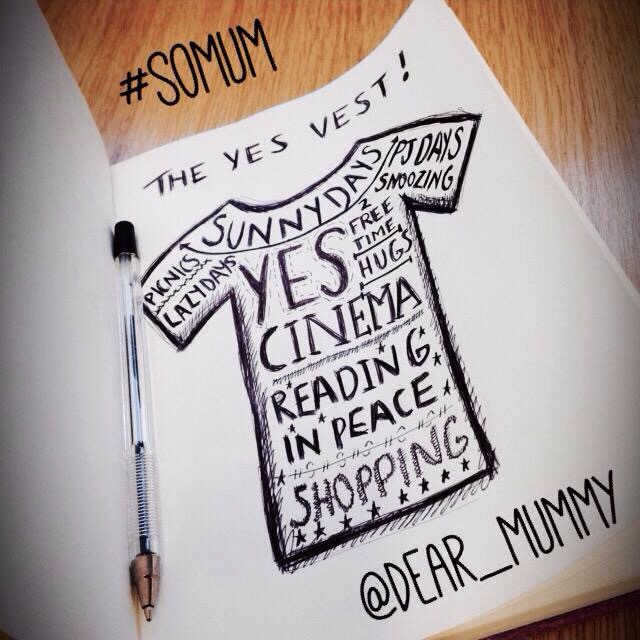 #SOMUM
THE YES VEST!
PICNICS
LAZY DAYS
SUNNY DAYS
PJ DAYS
SNOOZING
YES
FREE
TIME
HUGS
CINEMA
READING
IN PEACE
SHOPPING
@DEAR_MUMMY